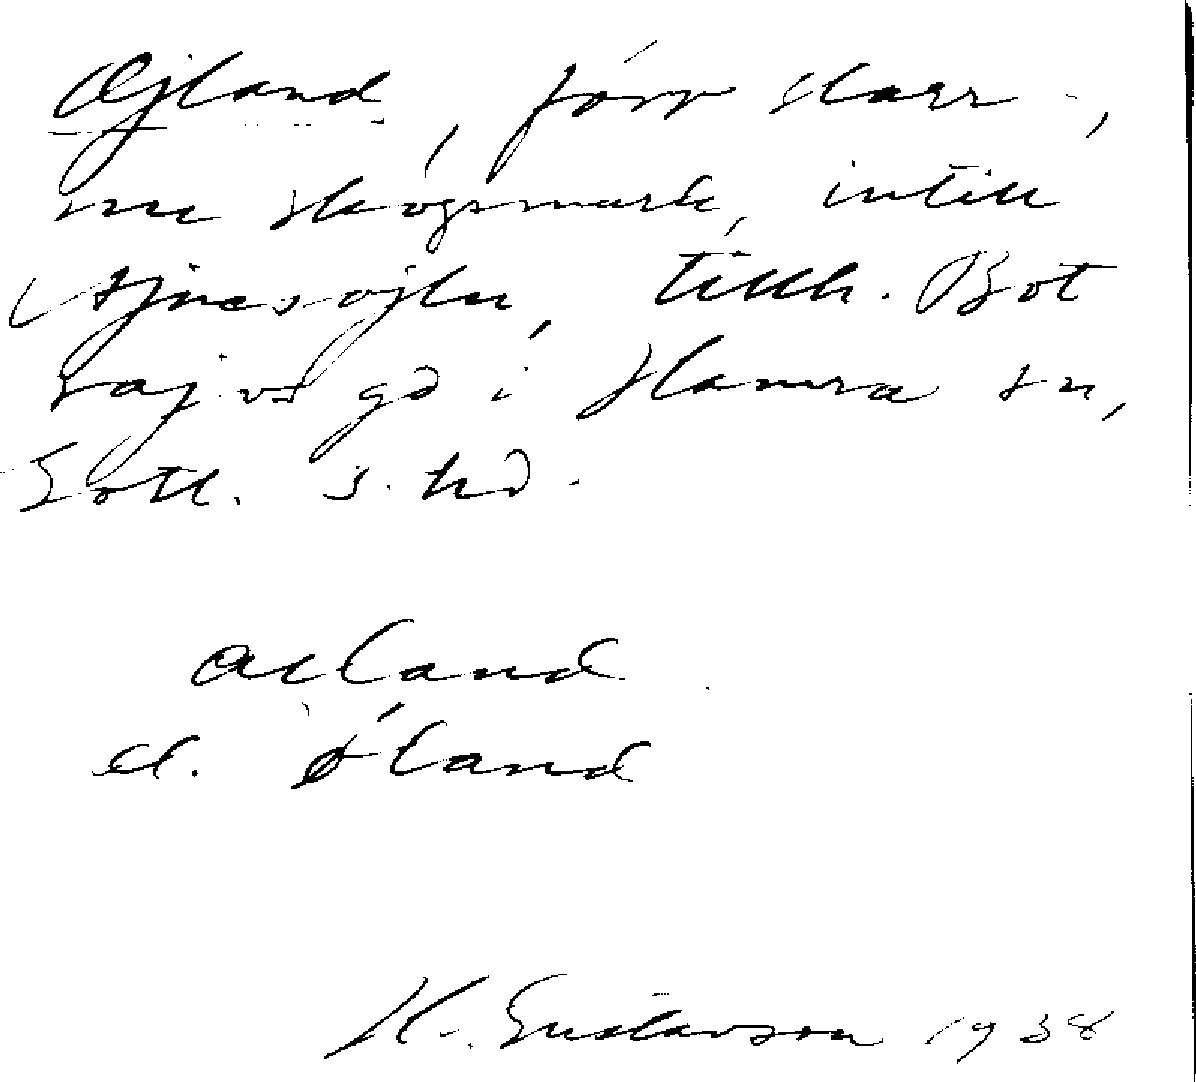 Øjland, förr starr-,
nu skogsmark, intill
Ajnesojlu, tillh. Bot
rajvs gd i Hamra sn,
Gotl. s. hd.
aeland
el. øland
H. Gustavson 1938